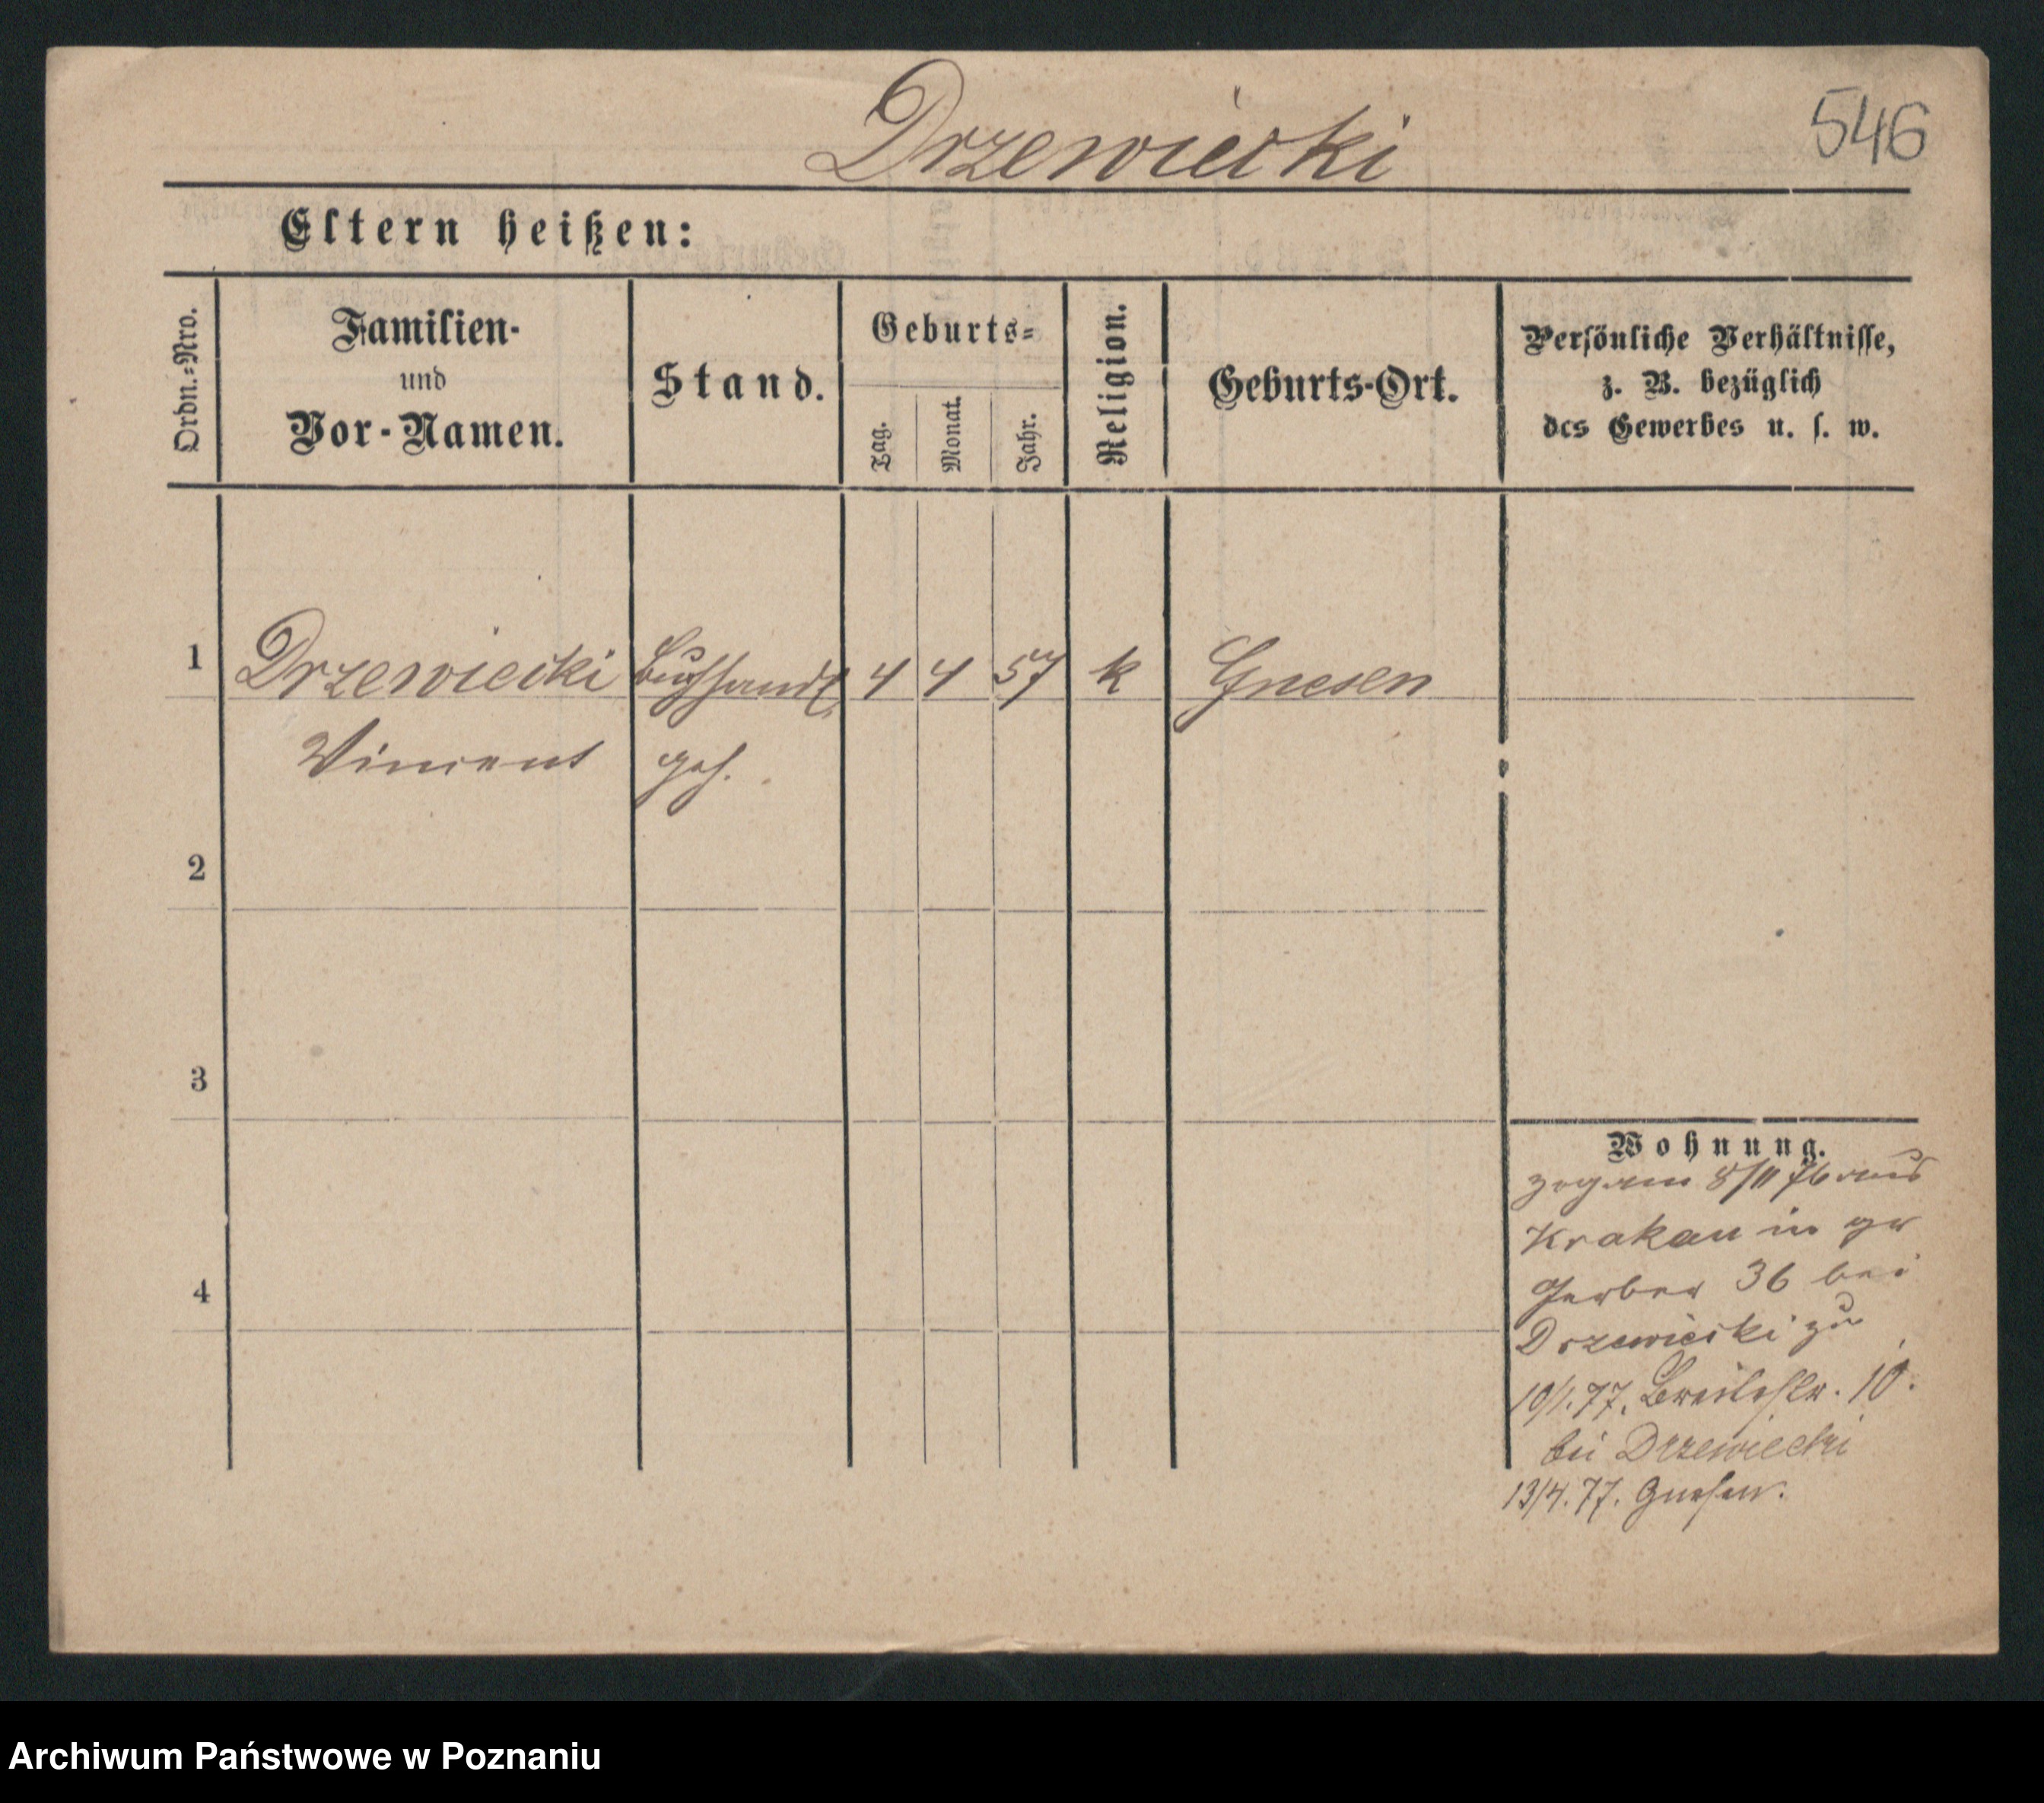 Drzewiecki
546
Eltern heißen:
Ordn.-Nro.
Familien-
und
Vor-Namen.
Stand.
Geburts-
Tag.
Monat.
Jahr.
Religion.
Geburts-Ort.
Persönliche Verhältnisse,
z. B. bezüglich
des Gewerbes u. s. w.
1 Drzewiecki Buchhandl 4 4 57 k Gnesen
Vincent geh.
2
3
4
Wohnung.
zog am 8/11 76 aus
Krakau in gr
Gerber 36 bei
Drzewiecki zu
10/1. 77. Breitestr. 10.
bei Drzewiecki
13/4. 77. Gnesen.
Archiwum Państwowe w Poznaniu